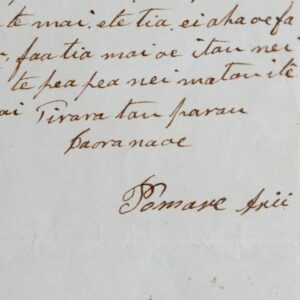 te mai. ete tia. ei aha oe fa
faa tia mai oe i tau nei
te pea pea nei matou i te
ai Tirara tau parau
Iaora na oe
Pomare Arii